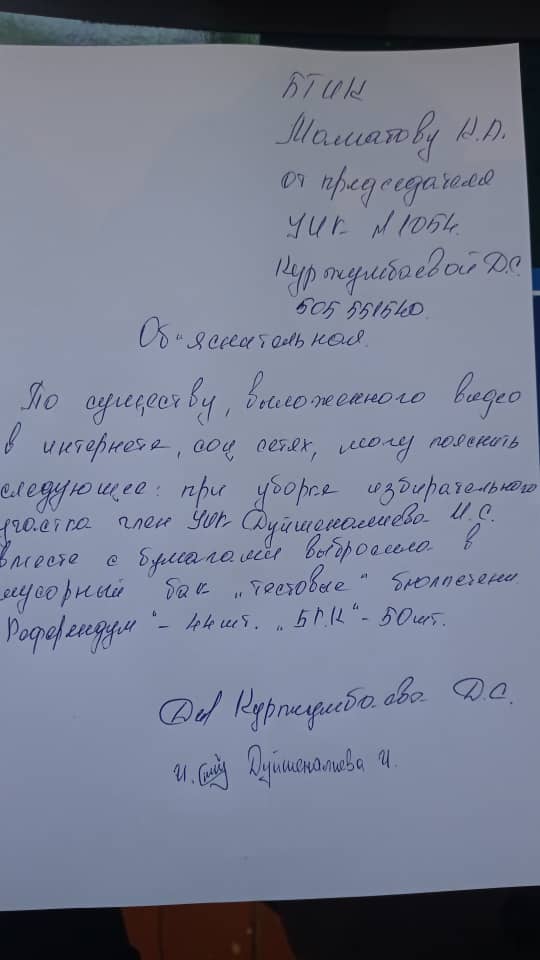 БТИК
Маматову Н.А.
от председателя
УИК №1054.
Куржумбаевой Д.С.
505 551540.
Об"яснительная.
По существу, выложенного видео
в интернете, соц сетях, могу пояснить
следующее: при уборке избирательного
участка член УИК Дуйшеналиева И.С.
вместе с бумагами выбросила в
мусорный бак „тестовые" бюллетени
Референдум" – 44 шт. „БГК" – 50 шт.
Куржумбаева Д.С.
Дуйшеналиева И.